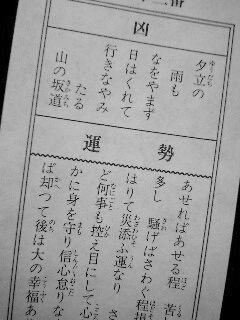 二番
凶
夕立の
雨も
なをやまず
日はくれて
行きなやみ
たる
山の坂道
運勢
あせればあせる程 苦
多し 騒げばさわぐ程損
はりて災添ふ運なり さ
ど何事も控え目にして心
かに身を守り信心怠りな
ば却つて後は大の幸福あ